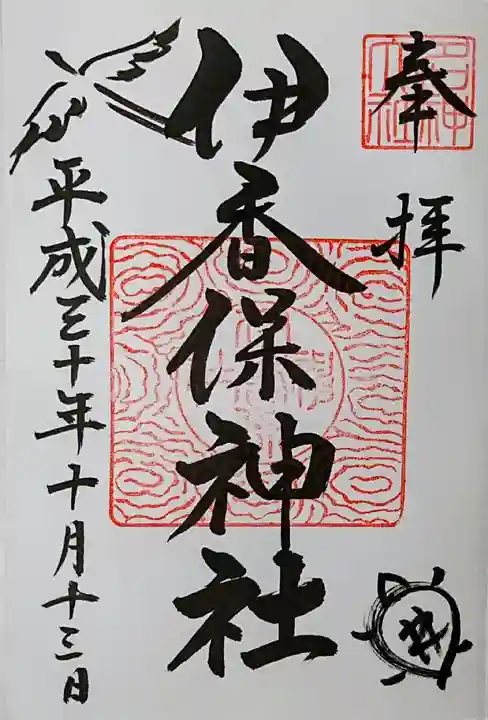 奉
拝
伊香保神社
平成三十年十月十三日